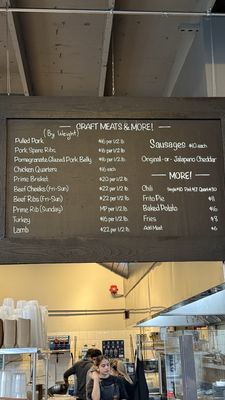 CRAFT MEATS & MORE!
(By Weight)
Pulled Pork $16 per 1/2 lb.
Pork Spare Ribs $16 per 1/2 lb.
Pomegranate Glazed Pork Belly $18 per 1/2 lb.
Chicken Quarters $16 each
Prime Brisket $20 per 1/2 lb.
Beef Cheeks (Fri-Sun) $22 per 1/2 lb.
Beef Ribs (Fri-Sun) $22 per 1/2 lb.
Prime Rib (Sunday) MP per 1/2 lb.
Turkey $16 per 1/2 lb.
Lamb $22 per 1/2 lb.
Sausages $10 each
Original -or- Jalapeño Cheddar
MORE!
Chili
Frito Pie $11
Baked Potato $16
Fries $8
Add Meat $6